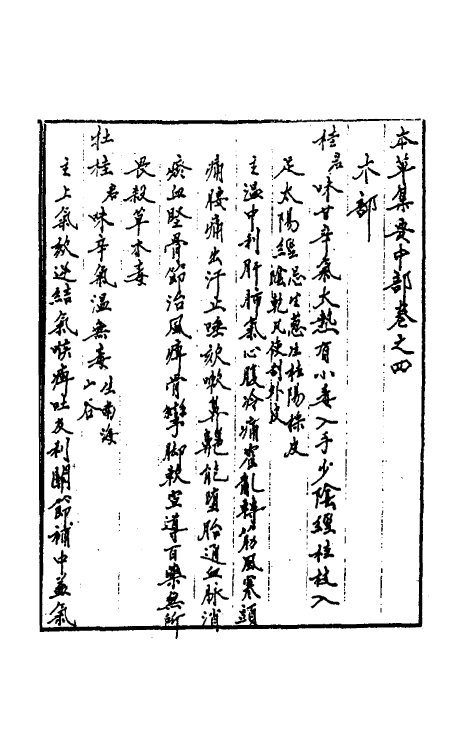 本草集要中部卷之四
木部
桂君味甘辛氣大熱有小毒入手少陰經桂枝入
足太陽經忌生葱生桂陽採皮陰乾凡使刮外皮
主溫中利肝肺氣心腹冷痛霍亂轉筋風寒頭
痛腰痛出汗止唾咳嗽鼻齆能墮胎通血脉消
瘀血堅骨節治風痺骨攣脚軟宣導百藥無所
畏殺草木毒
牡桂君味辛氣溫無毒生南海山谷
主上氣欬逆結氣喉痺吐及利關節補中益氣